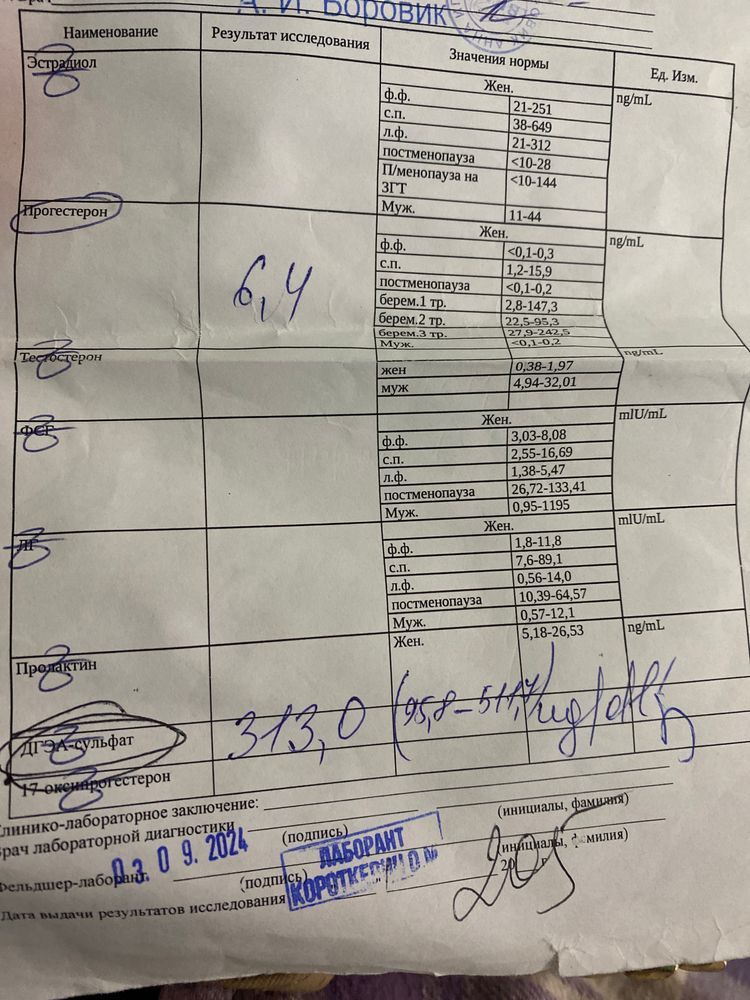 А. И. Боровик
Наименование Результат исследования Значения нормы Ед. Изм.
Эстрадиол Жен. ng/mL
ф.ф. 21-251
с.п. 38-649
л.ф. 21-312
постменопауза <10-28
П/менопауза на ЗГТ <10-144
Муж. 11-44
Прогестерон 6,4 Жен. ng/mL
ф.ф. <0,1-0,3
с.п. 1,2-15,9
постменопауза <0,1-0,2
берем.1 тр. 2,8-147,3
берем.2 тр. 22,5-95,3
берем.3 тр. 27,9-242,5
Муж. <0,1-0,2
Тестостерон ng/mL
жен 0,38-1,97
муж 4,94-32,01
ФСГ Жен. mlU/mL
ф.ф. 3,03-8,08
с.п. 2,55-16,69
л.ф. 1,38-5,47
постменопауза 26,72-133,41
Муж. 0,95-1195
ЛГ Жен. mlU/mL
ф.ф. 1,8-11,8
с.п. 7,6-89,1
л.ф. 0,56-14,0
постменопауза 10,39-64,57
Муж. 0,57-12,1
Пролактин Жен. 5,18-26,53 ng/mL
ДГЭА-сульфат 313,0 (95,8-511,7) ug/dl
17-оксипрогестерон
Клинико-лабораторное заключение:
Врач лабораторной диагностики (подпись) (инициалы, фамилия)
Фельдшер-лаборант (подпись) (инициалы, фамилия)
03.09.2024
ЛАБОРАНТ
КОРОТКЕВИЧ О.М
Дата выдачи результатов исследования " 20 г.